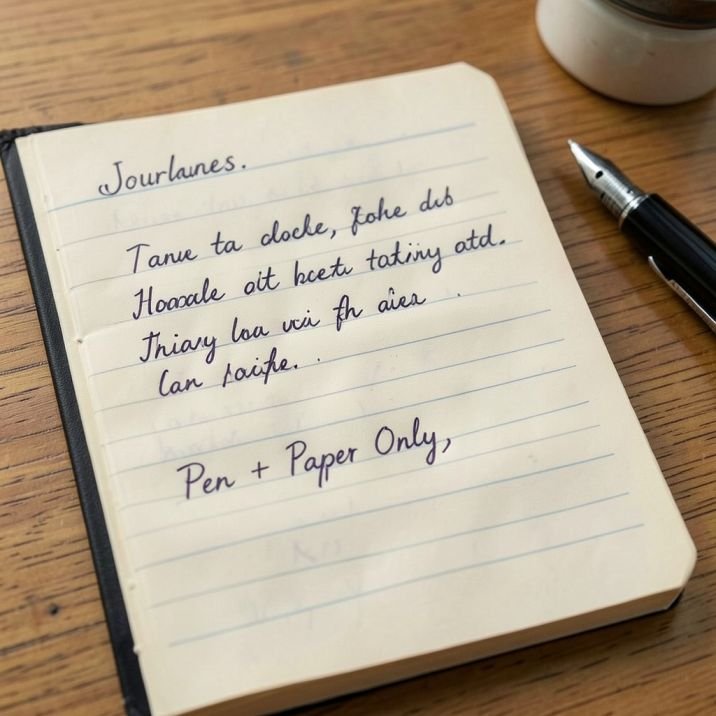 Jourlaunes.
Tanue ta docke, Fohe dub
Hooaale oit hcetı takiny otd.
Thiary loa uci fh aiea
Can paife.
Pen + Paper Only,